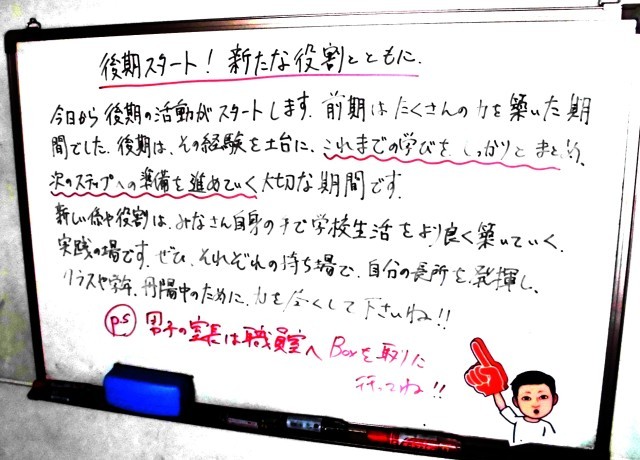 後期スタート! 新たな役割とともに.
今日から後期の活動がスタートします. 前期はたくさんの力を築いた期
間でした. 後期は、その経験を土台に、これまでの学びを、しっかりとまとめ、
次のステップへの準備を進めていく大切な期間です.
新しい係や役割は、みなさん自身の手で学校生活をより良く築いていく、
実践の場です. ぜひ、それぞれの持ち場で、自分の長所を、発揮し、
クラスや学年、丹陽中のために、力を尽くして下さいね!!
ps 男子の室長は職員室へ Boxを取りに
行ってね!!